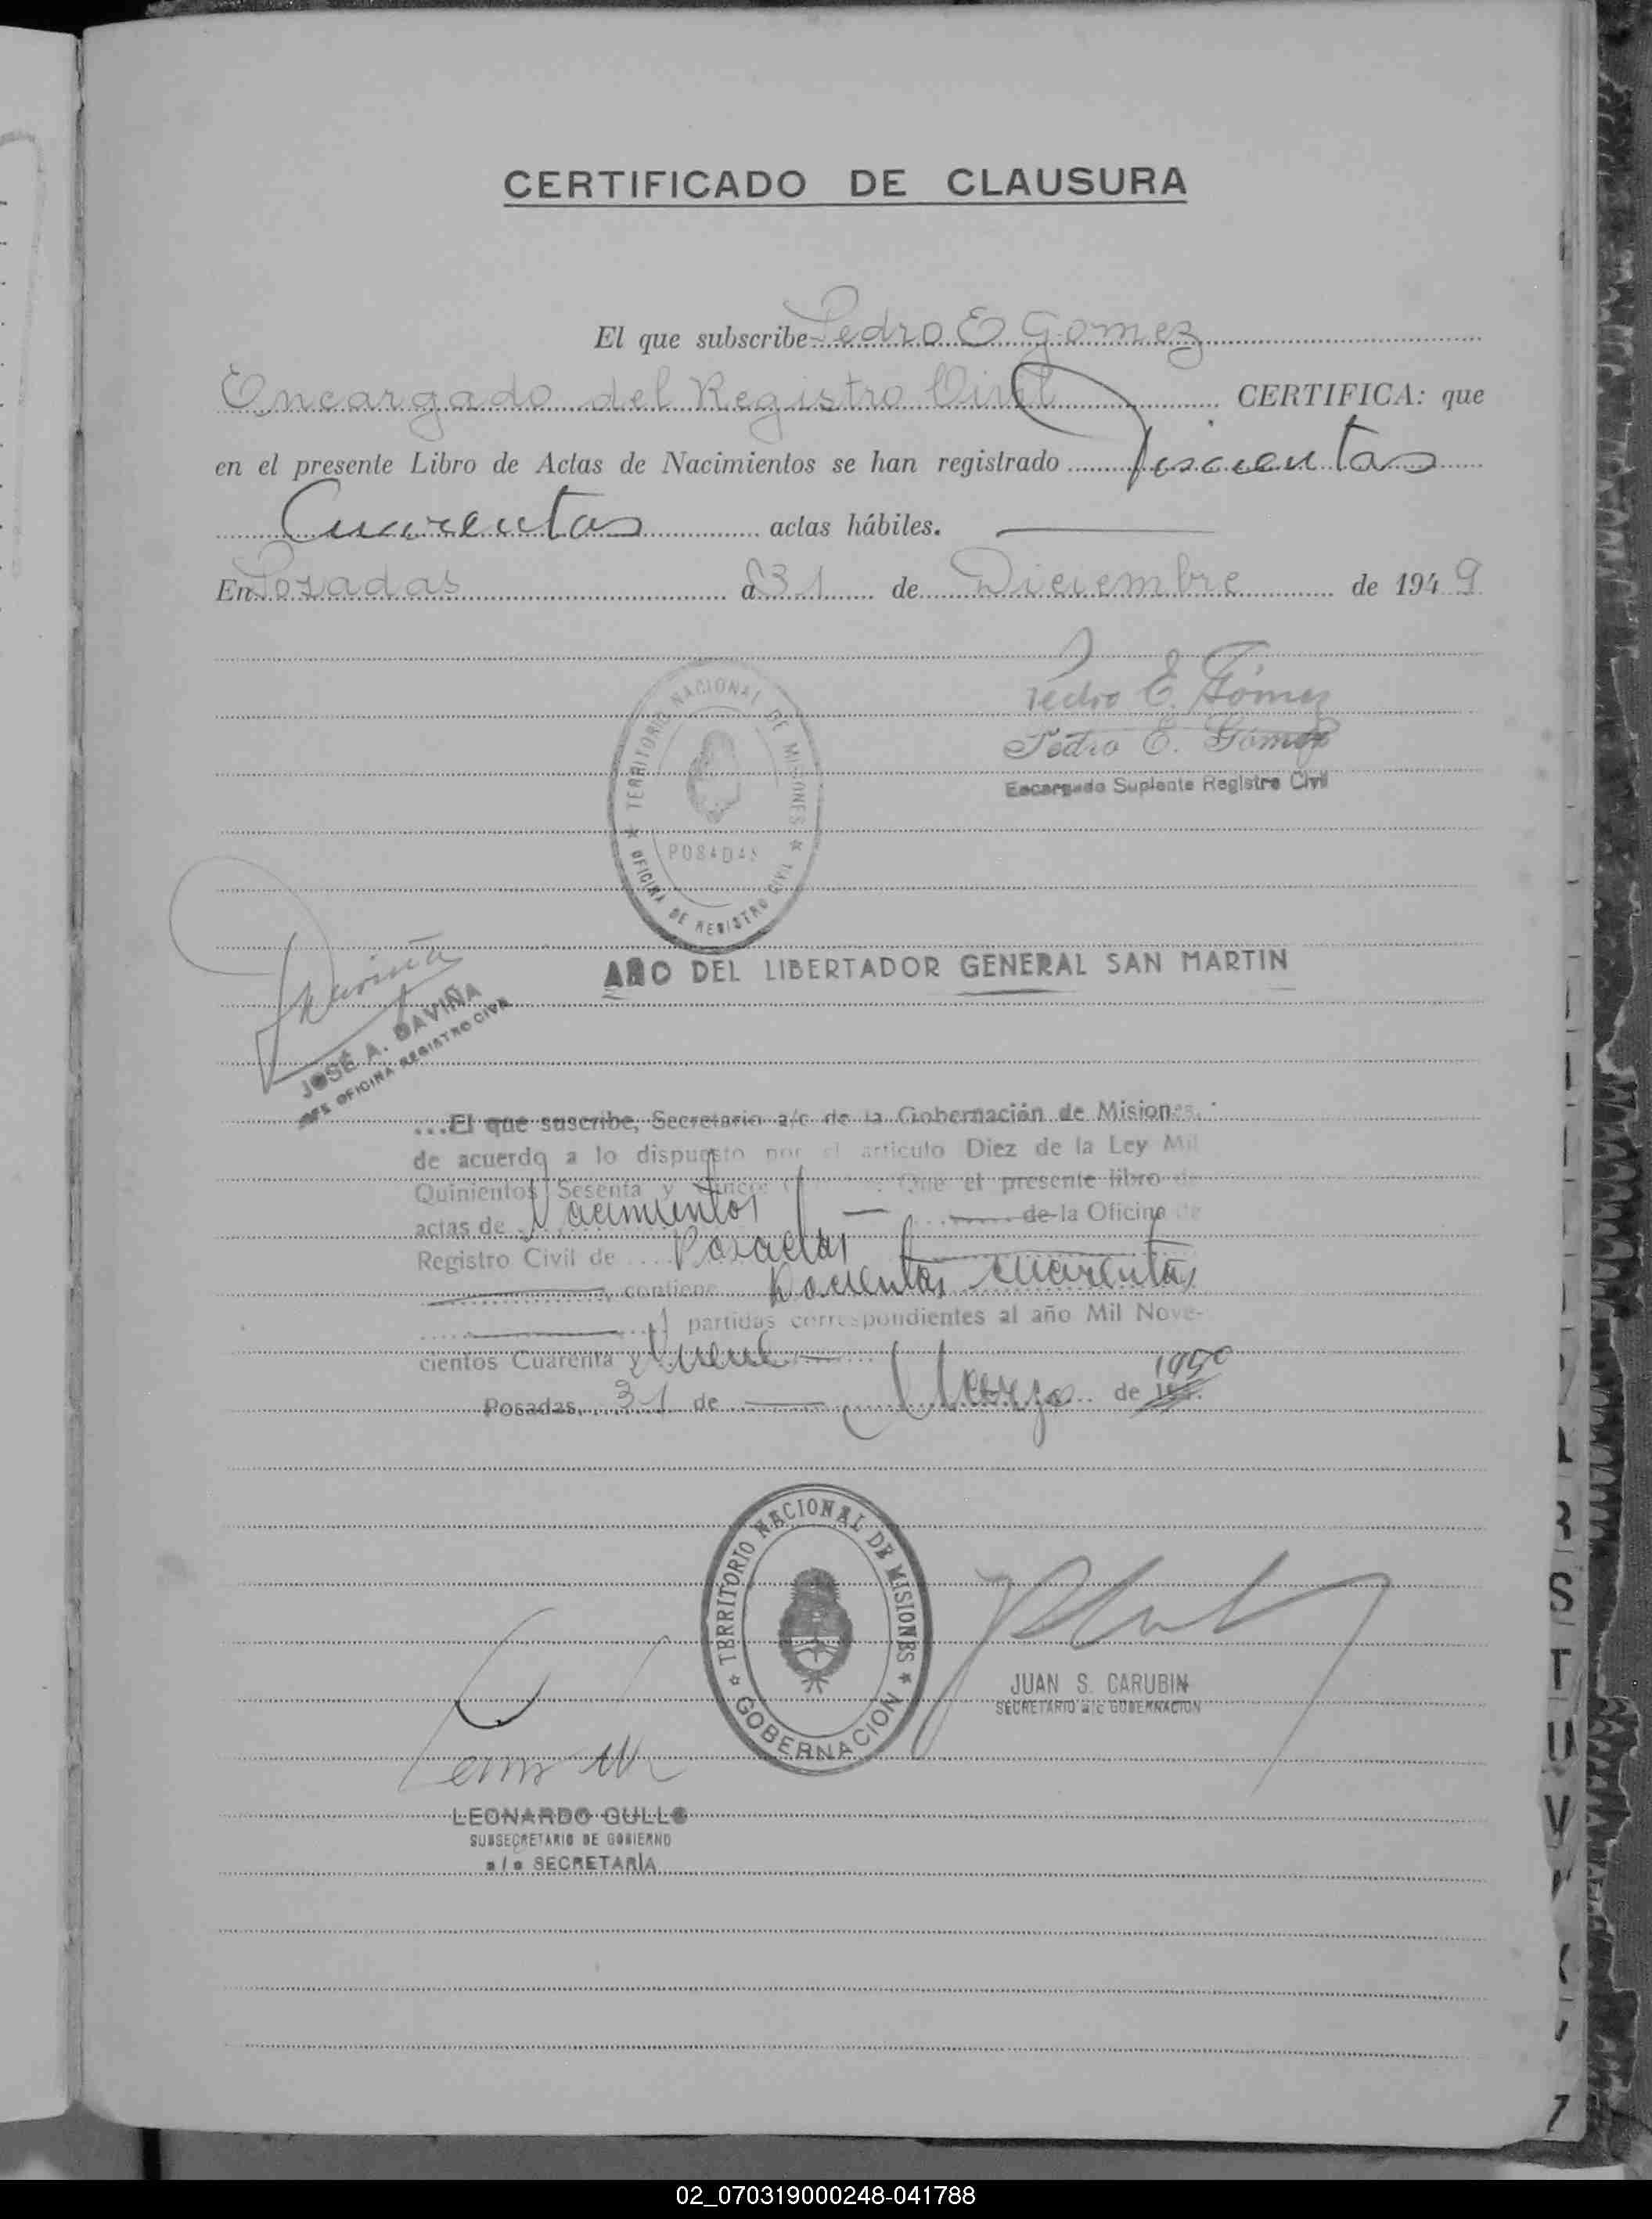 CERTIFICADO DE CLAUSURA
El que subscribe Pedro E Gomez
Encargado del Registro Civil CERTIFICA: que
en el presente Libro de Actas de Nacimientos se han registrado Doscientas
Cuarentas actas hábiles.
En Posadas a 31 de Diciembre de 1949
TERRITORIO NACIONAL DE MISIONES
POSADAS
OFICINA DE REGISTRO CIVIL
Pedro E. Gómez
Pedro E. Gómez
Encargado Suplente Registro Civil
AÑO DEL LIBERTADOR GENERAL SAN MARTIN
Daviña
JOSÉ A. DAVIÑA
JEFE OFICINA REGISTRO CIVIL
...El que suscribe, Secretario a/c de la Gobernación de Misiones,
de acuerdo a lo dispuesto por el artículo Diez de la Ley Mil
Quinientos Sesenta y Cinco Que el presente libro de
actas de Nacimientos de la Oficina de
Registro Civil de Posadas
contiene Docientas cuarentas
partidas correspondientes al año Mil Nove-
cientos Cuarenta y Nueve
Posadas, 31 de Marzo de 1950
TERRITORIO NACIONAL DE MISIONES
GOBERNACION
JUAN S. CARUBIN
SECRETARIO a/c GOBERNACION
LEONARDO GULLO
SUBSECRETARIO DE GOBIERNO
a/c SECRETARÍA
S
T
U
V
02_070319000248-041788